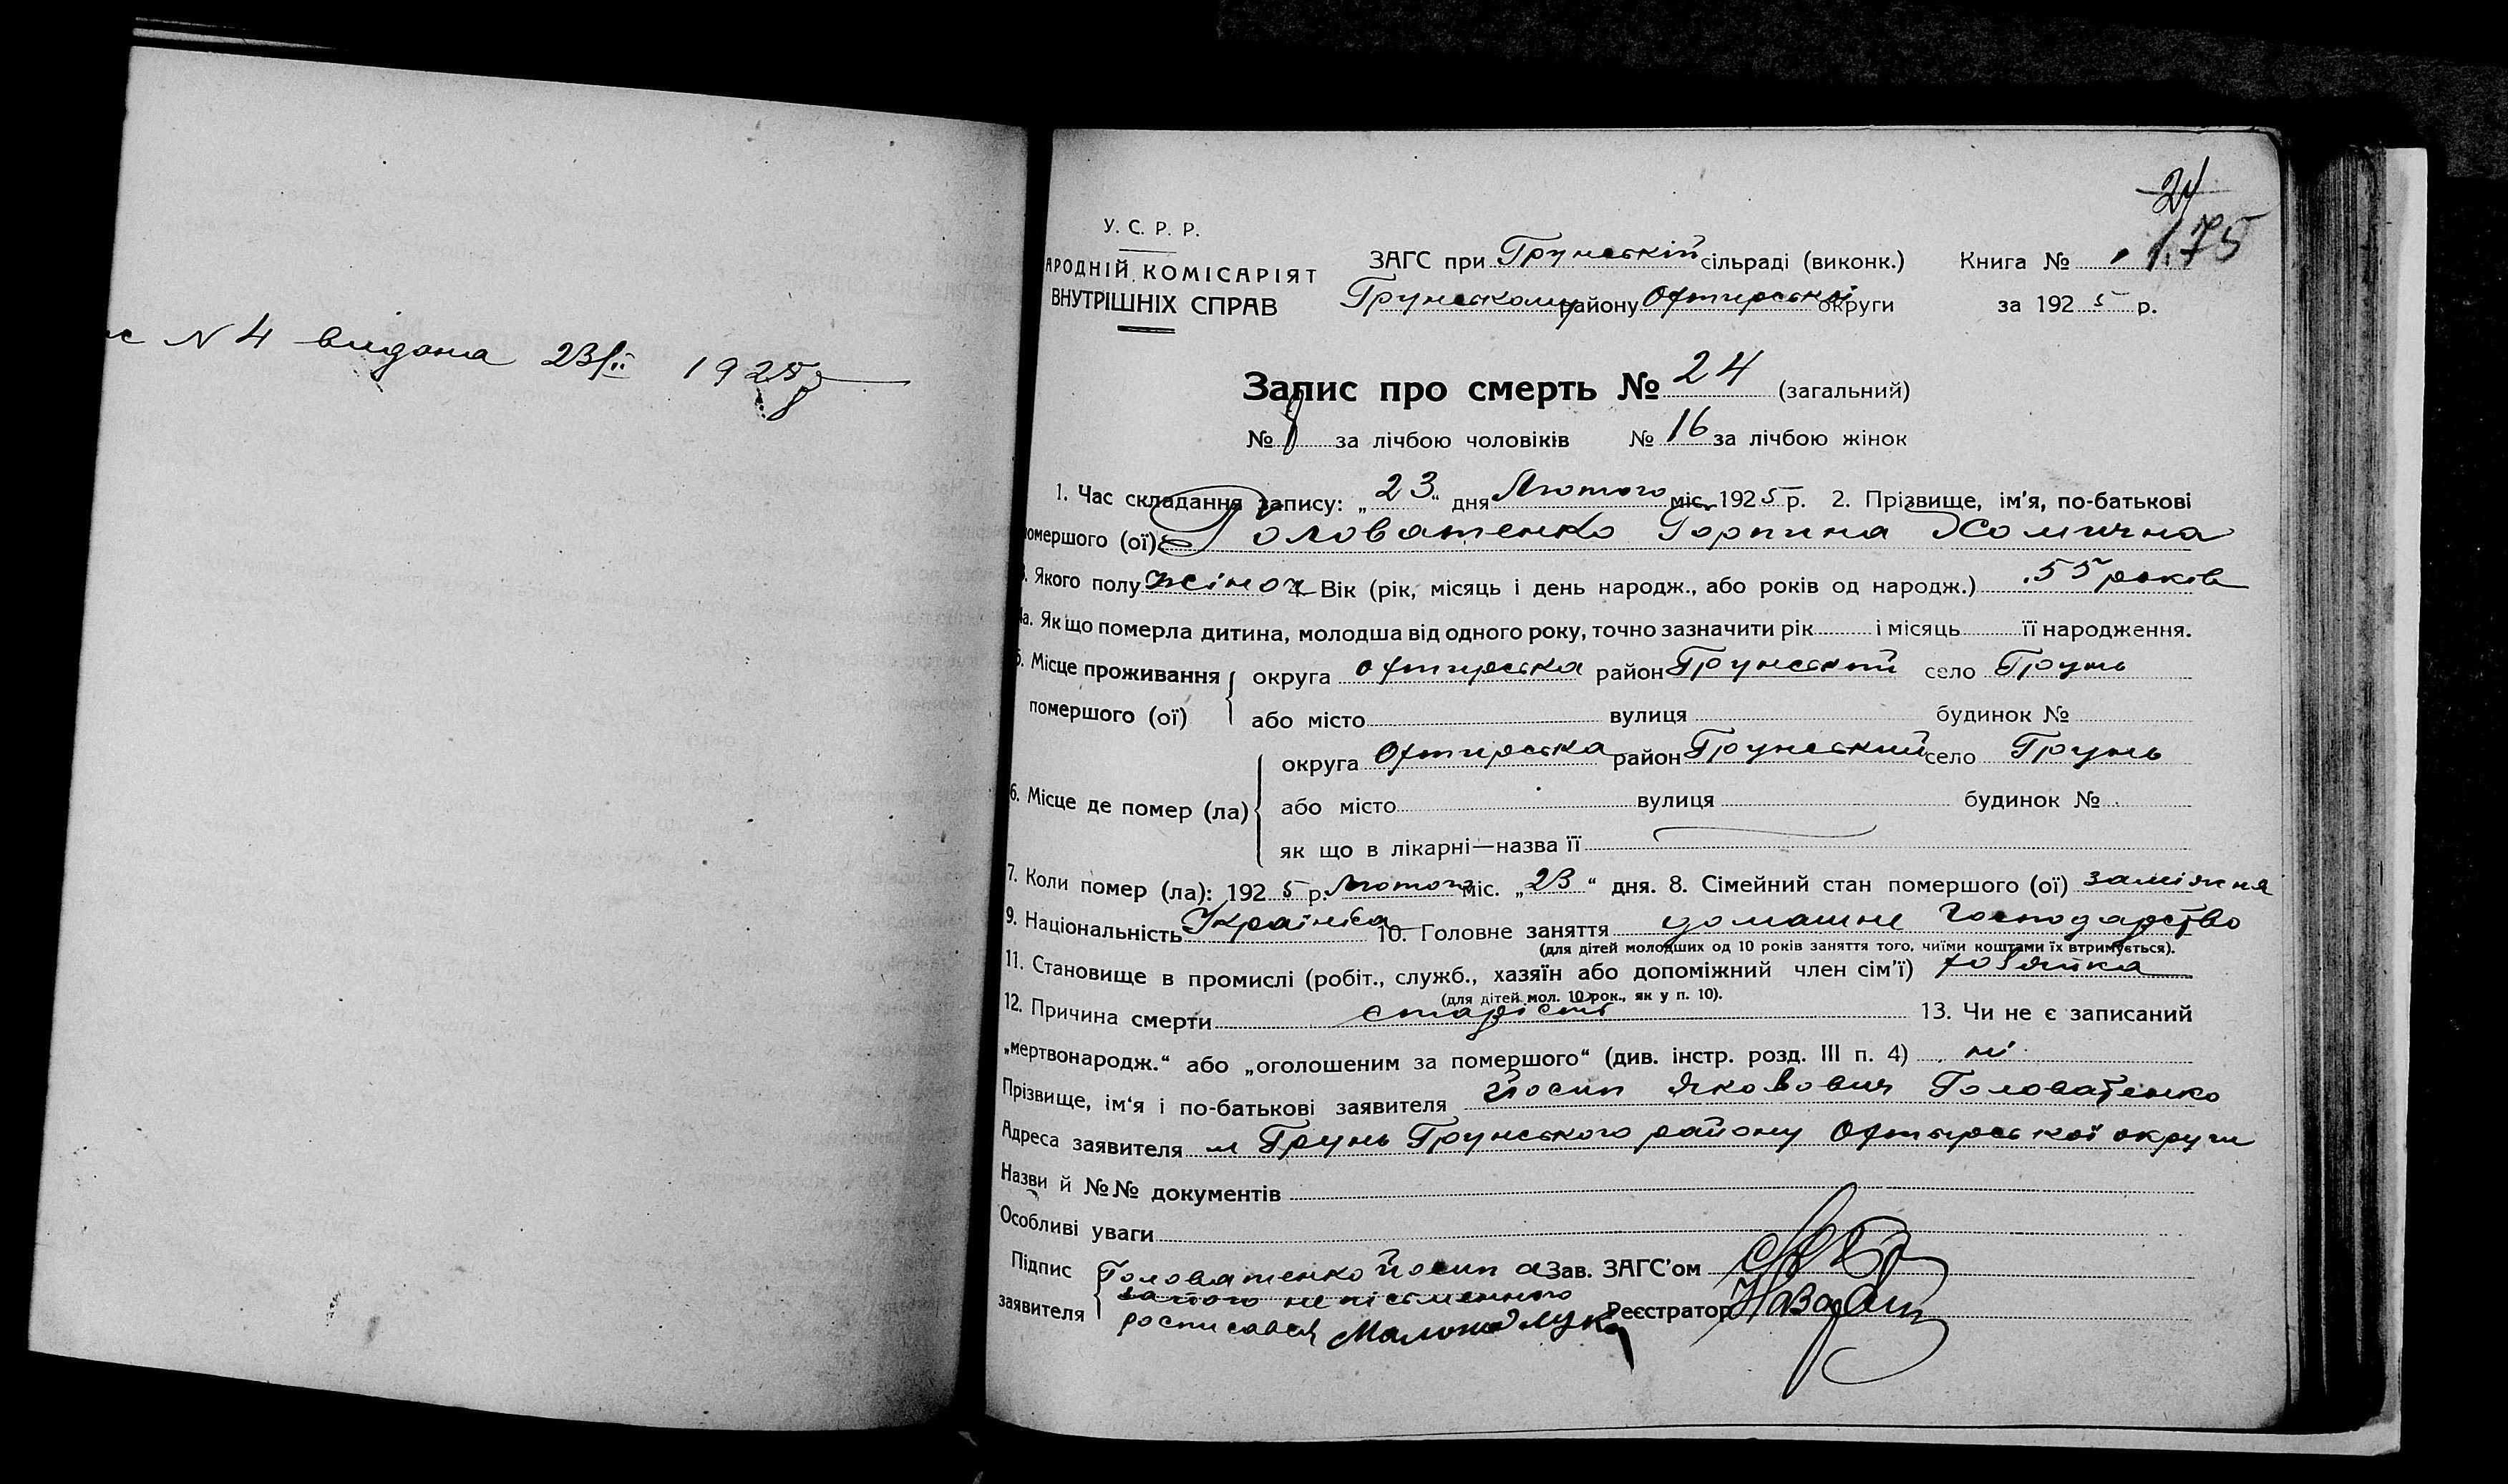 № 4 видана 23/II 1925 р
24
175
У. С. Р. Р.
АРОДНІЙ КОМІСАРІЯТ
ВНУТРІШНІХ СПРАВ
ЗАГС при Грунській сільраді (виконк.) Книга № 1
Грунському району Охтирської округи за 192 5 р.
Запис про смерть № 24 (загальний)
№ за лічбою чоловіків № 16 за лічбою жінок
1. Час складання запису: „ 23 “ дня Лютого міс. 192 5 р. 2. Прізвище, ім'я, по-батькові
омершого (ої) Головатенко Горпина Хомична
3. Якого полу жіноч 4. Вік (рік, місяць і день народж., або років од народж.) 55 років
4а. Як що померла дитина, молодша від одного року, точно зазначити рік і місяць її народження.
5. Місце проживання помершого (ої) округа Охтирська район Грунський село Грунь
або місто вулиця будинок №
6. Місце де помер (ла) округа Охтирська район Грунський село Грунь
або місто вулиця будинок №
як що в лікарні—назва її
7. Коли помер (ла): 192 5 р. Лютого міс. „ 23 “ дня. 8. Сімейний стан помершого (ої) заміжня
9. Національність Українка 10. Головне заняття домашне господарство
(для дітей молодших од 10 років заняття того, чиїми коштами їх втримується).
11. Становище в промислі (робіт., служб., хазяїн або допоміжний член сім'ї) хозяйка
(для дітей мол. 10 рок., як у п. 10).
12. Причина смерти старість 13. Чи не є записаний
„мертвонародж.“ або „оголошеним за помершого“ (див. інстр. розд. III п. 4) ні
Прізвище, ім'я і по-батькові заявителя Йосип Якович Головатенко
Адреса заявителя м Грунь Грунського району Охтырської округи
Назви й №№ документів
Особливі уваги
Підпис заявителя Головатенко Йосип а Зав. ЗАГС'ом
за його неписьменного Реєстратор
росписався